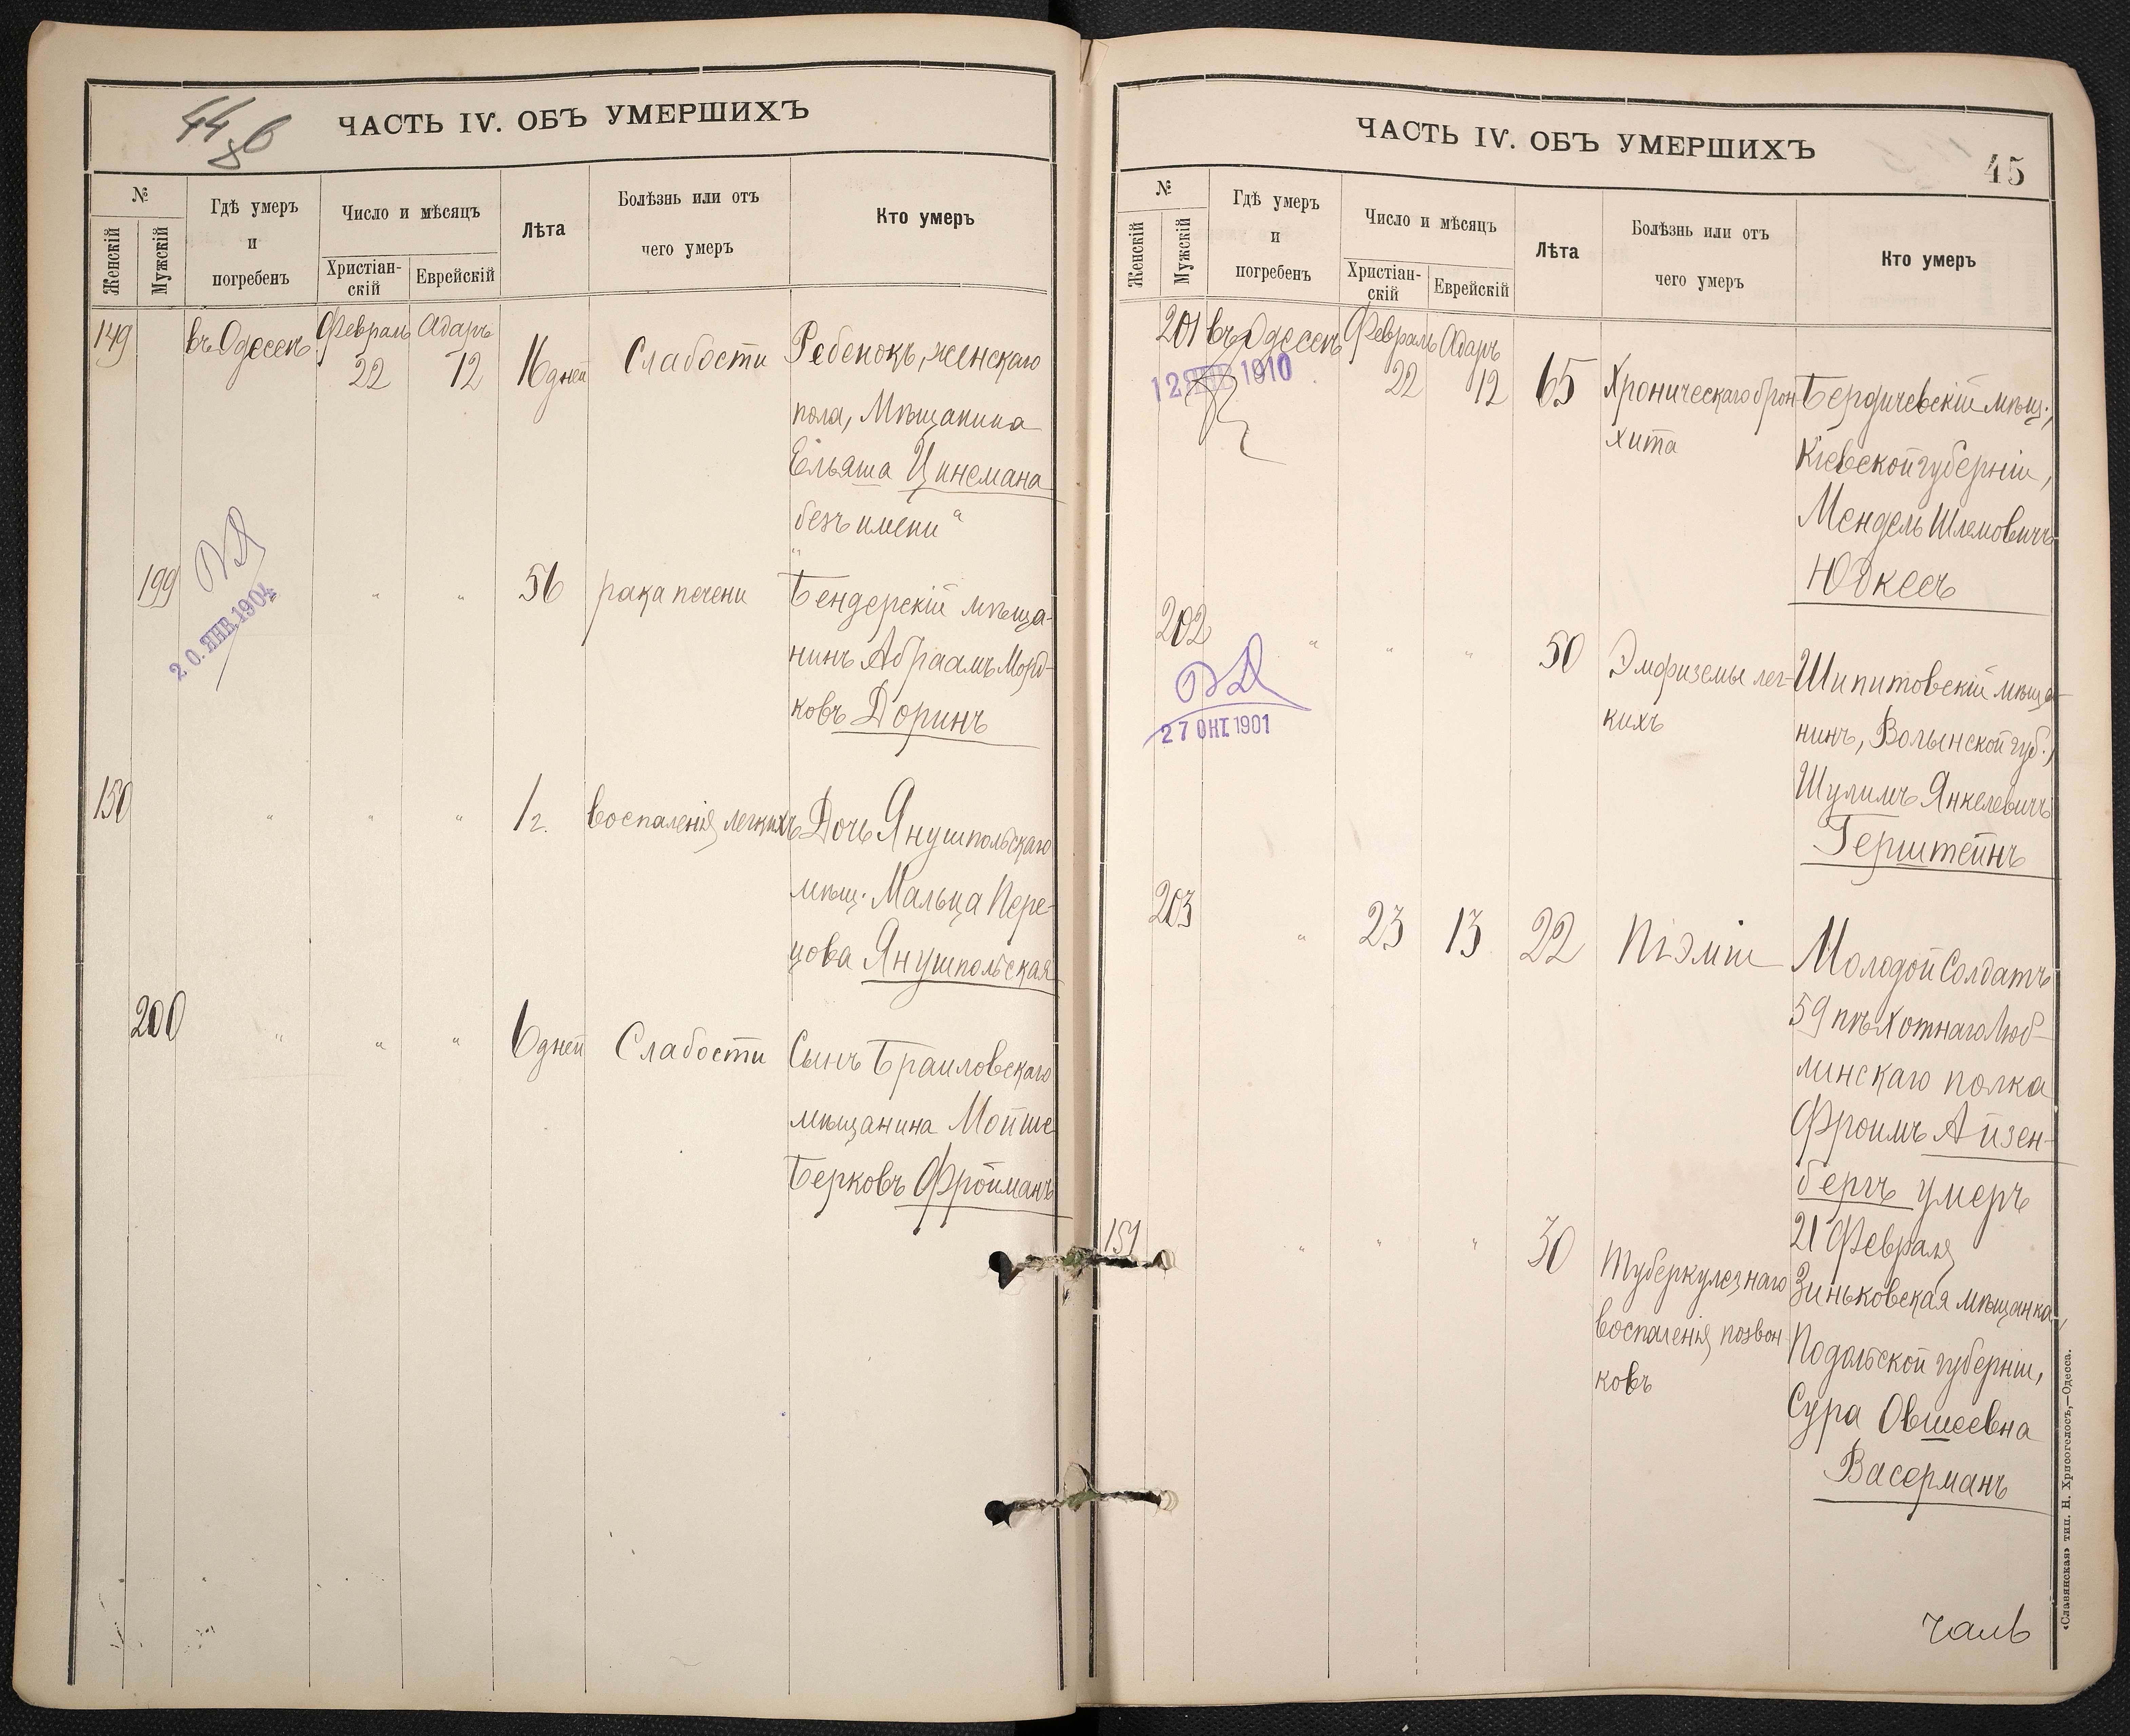 44 об
ЧАСТЬ IV. ОБЪ УМЕРШИХЪ
№
Женскій
Мужскій
Гдѣ умеръ
и
погребенъ
Число и мѣсяцъ
Христіан-
скій
Еврейскій
Лѣта
Болѣзнь или отъ
чего умеръ
Кто умеръ
149 въ Одессѣ Февраль Адаръ
22 12 16 дней Слабости Ребенокъ, женскаго
пола, Мѣщанина
Ельяша Цинемана
безъ имени"
199 " " 56 рака печени Бендерскій мѣща-
нинъ Абраамъ Морд-
ковъ Доринъ
20. ЯНВ. 1904
150 " " " 1 г. воспаленія легкихъ Дочь Янушпольскаго
мѣщ. Мальца Пере-
цова Янушпольская
200 " " " 6 дней Слабости Сынъ Браиловскаго
мѣщанина Мойше
Берковъ Фройманъ
ЧАСТЬ IV. ОБЪ УМЕРШИХЪ
45
№
Женскій
Мужскій
Гдѣ умеръ
и
погребенъ
Число и мѣсяцъ
Христіан-
скій
Еврейскій
Лѣта
Болѣзнь или отъ
чего умеръ
Кто умеръ
201 въ Одессѣ Февраль Адаръ
22 12 65 Хроническаго брон- Бердичевскій мѣщ.,
12 ЯНВ 1910
хита Кіевской губерніи,
Мендель Шлемовичъ
Юдкесъ
202 " " " 50 Эмфиземы лег- Шипитовскій мѣща-
кихъ нинъ, Волынской губ.,
27 ОКТ 1901
Шулимъ Янкелевичъ
Герштейнъ
203 " 23 13 22 Піэміи Молодой Солдатъ
59 пѣхотнаго Люб-
линскаго полка
Фроимъ Айзен-
бергъ умеръ
21 Февраля
151 " " " 30 Туберкулезнаго Зиньковская мѣщанка,
воспаленія позвон- Подольской губерніи,
ковъ Сура Овшеевна
Васерманъ
«Славянская» тип. Н. Хрисогелосъ,—Одесса.